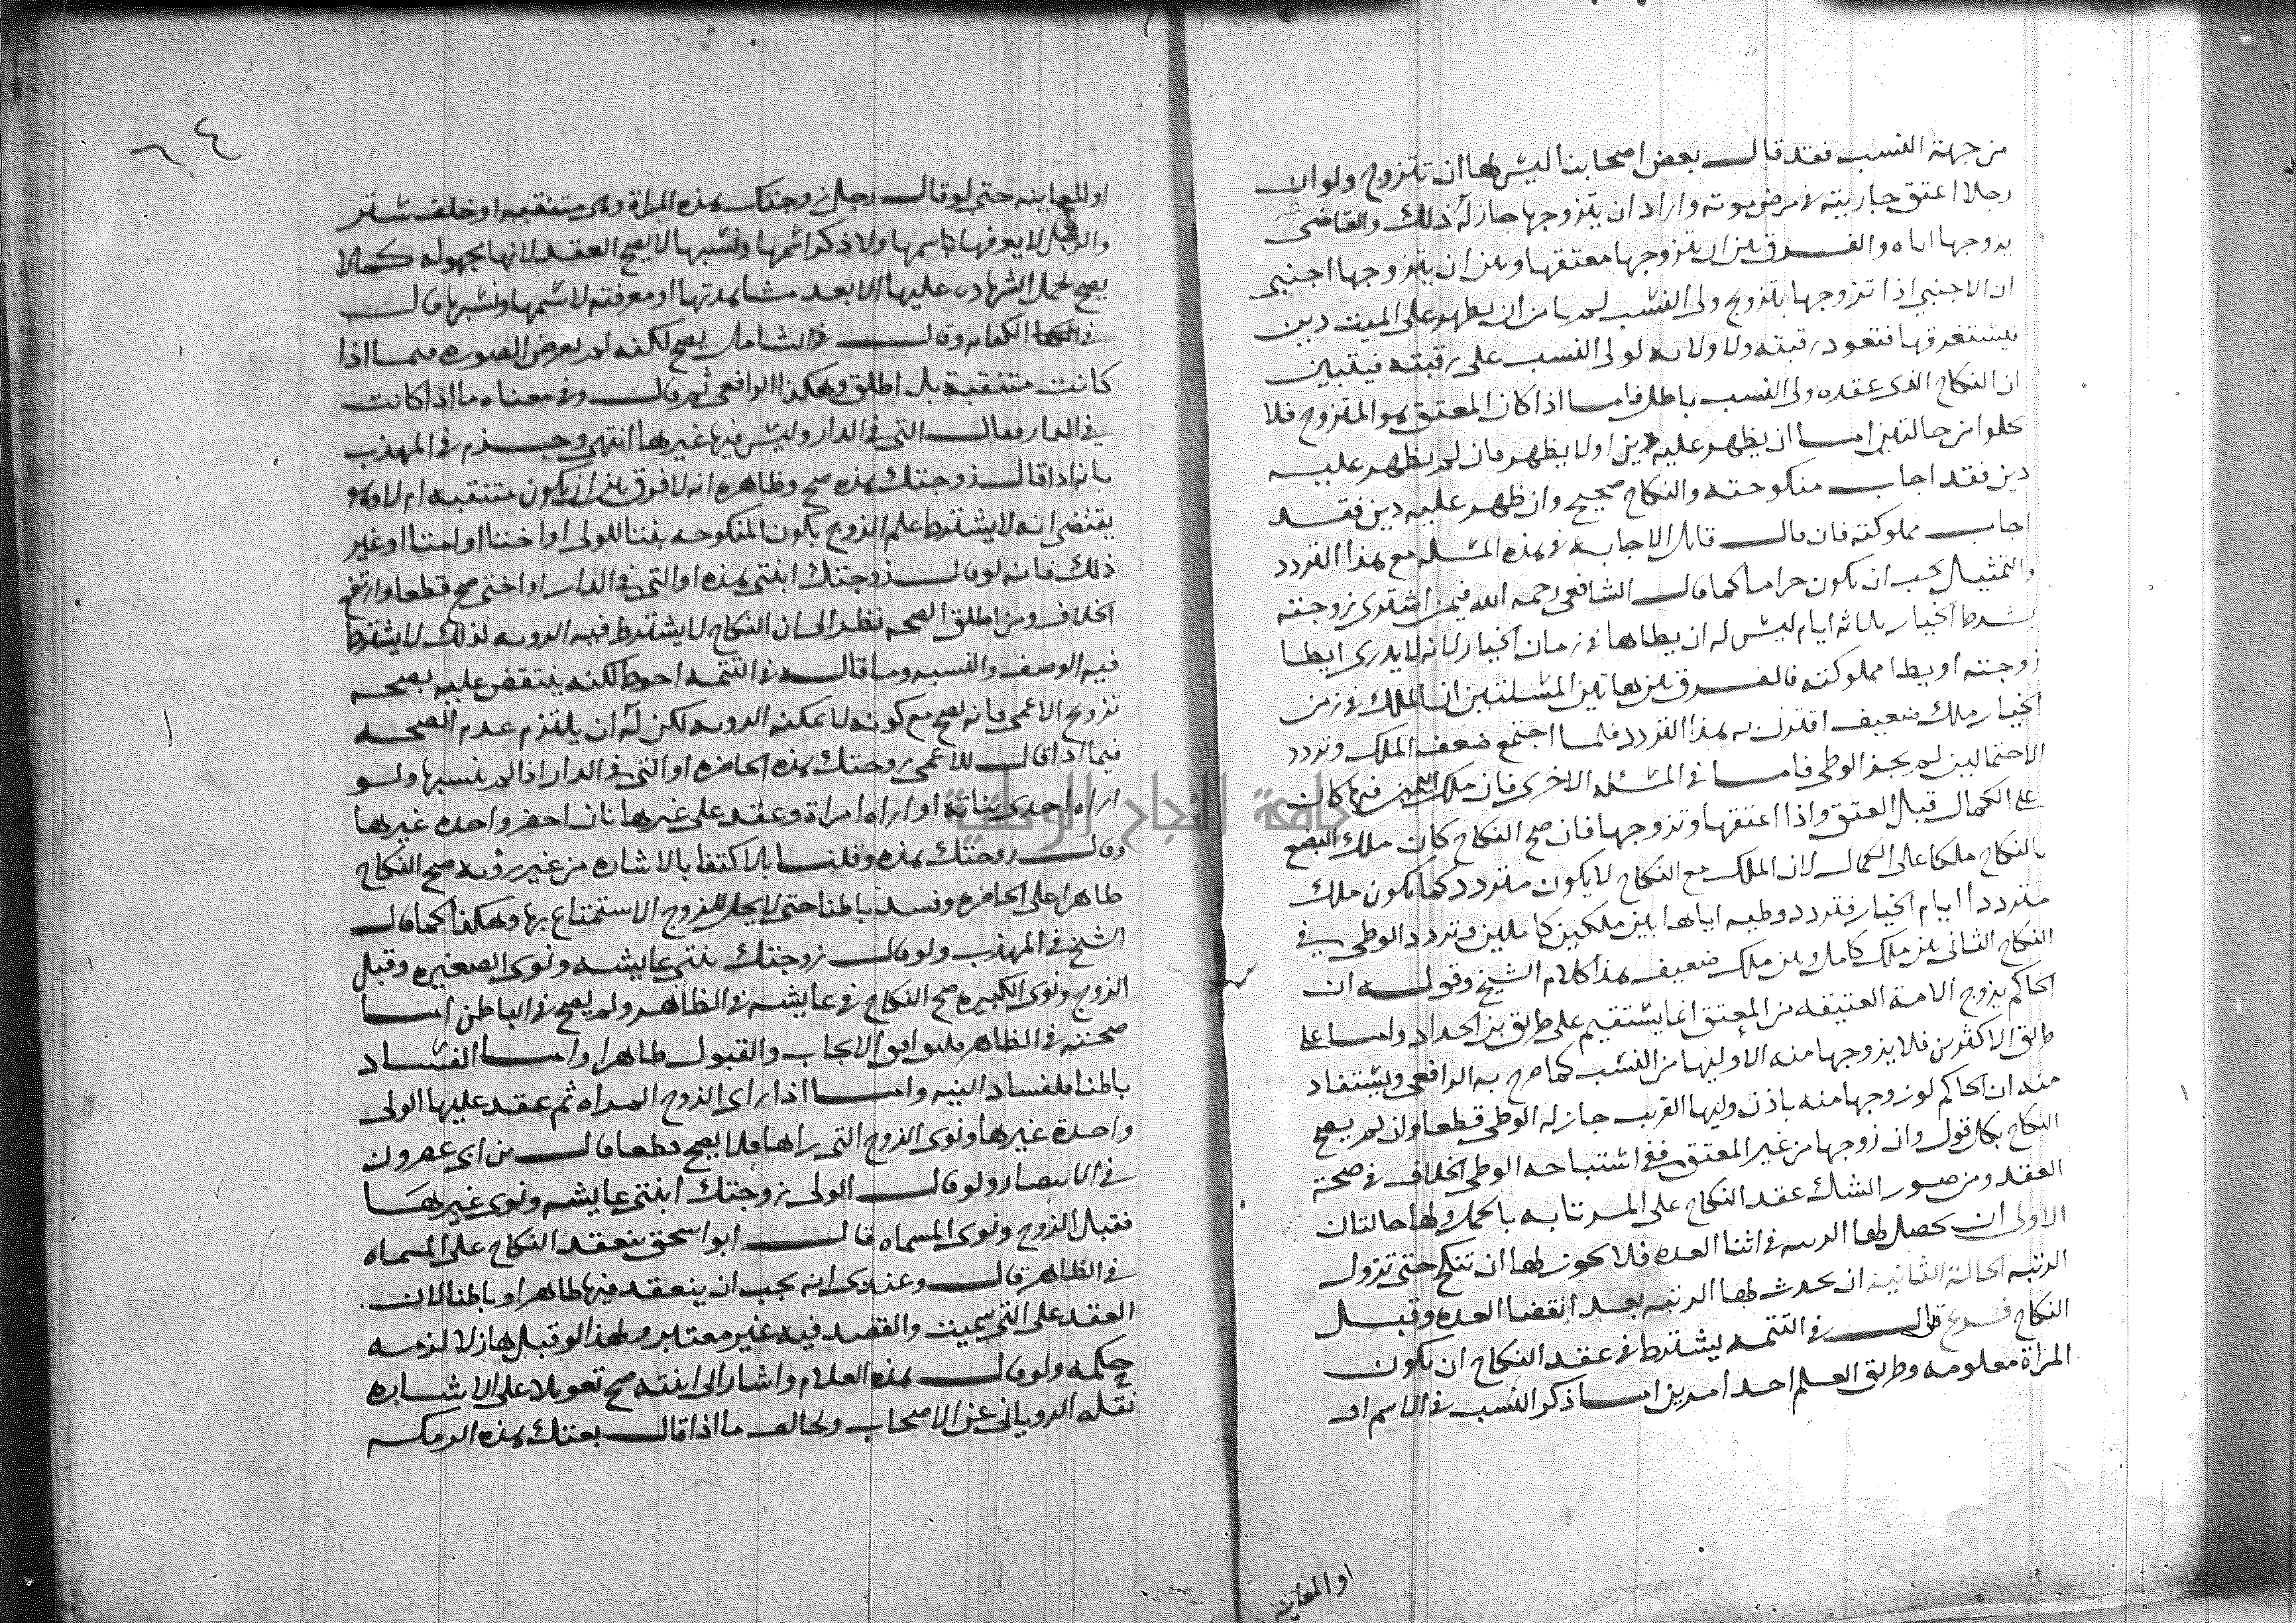 من جهة النسب فقد قال بعض اصحابنا ليس لها ان تتزوج ولو ان
رجلا اعتق جاريته في مرض موته واراد ان يتزوجها جاز له ذلك والقاضي
يزوجها اياه والفرق بين ان يتزوجها معتقها وبين ان يتزوجها اجنبي
ان الاجنبي اذا تزوجها بتزويج ولي النسب لم يامن ان يظهر على الميت دين
يستغرقها فتعود رقبته ولا ولايه لولي النسب على رقبته فيتبين
ان النكاح الذي عقده ولي النسب باطل فاما اذا كان المعتق هو المتزوج فلا
يخلوا من حالتين اما ان يظهر عليه دين اولا يظهر فان لم يظهر عليه
دين فقد اجاب منكوحته والنكاح صحيح وان ظهر عليه دين فقد
اجاب مملوكته فان قال قايل الاجابه في هذه المسله مع هذا التردد
والتمثيل يجب ان يكون حراما كما قال الشافعي رحمه الله فيمن اشترى زوجته
بشرط الخيار ثلاثة ايام ليس له ان يطاها في زمان الخيار لانه لا يدري ايطا
زوجته او يطا مملوكته فالفرق بين هاتين المسلتين ان الملك في زمن
الخيار ملك ضعيف اقترن به هذا التردد فلما اجتمع ضعف الملك وتردد
الاحتمالين لم يجز الوطي فاما في المسئله الاخرى فان ملك اليمين فيها كان
على الكمال قبل العتق واذا اعتقها وتزوجها فان صح النكاح كان ملك البضع
بالنكاح ملكا على الكمال لان الملك مع النكاح لا يكون متردد كما يكون ملك
متردد ا ايام الخيار فتردد وطيه اياها بين ملكين كاملين وتردد الوطي في
النكاح الثاني بين ملك كامل وبين ملك ضعيف هذا كلام الشيخ وقوله ان
الحاكم يزوج الامة العتيقه من المعتق انما يستقيم على طريق بن الحداد واما على
طريق الاكثرين فلا يزوجها منه الا وليها من النسب كما صرح به الرافعي ويستفاد
منه ان الحاكم لو زوجها منه باذن وليها القريب جاز له الوطي قطعا وان لم يصح
النكاح بكل قول وان زوجها من غير المعتق ففي استباحه الوطي الخلاف في صحة
العقد ومن صور الشك عقد النكاح على المرتابه بالحمل ولها حالتان
الاولى ان يحصل لها الريبه في اثنا العده فلا يجوز لها ان تنكح حتى تزول
الريبه الحالة الثانية ان يحدث لها الريبه بعد انقضا العده وقبل
النكاح فرع قال في التتمه يشترط في عقد النكاح ان يكون
المراة معلومه وطريق العلم احد امرين اما ذكر النسب في الاسم او
او المعاينه
٦٤
او المعاينه حتى لو قال رجل زوجتك هذه المراة وهي متنقبه او خلف ستر
والرجل لا يعرفها باسمها ولا ذكر اسمها ونسبها لا يصح العقد لانها مجهوله كما لا
يصح تحمل الشهاده عليها الا بعد مشاهدتها او معرفته لاسمها ونسبها قال
في الكفايه وقال في الشامل يصح لكنه لم يعرض الصوره فيما اذا
كانت متنقبة بل اطلق وهكذا الرافعي ثم قال وفي معناه ما اذا كانت
في الدار فقال التي في الدار وليس فيها غيرها انتهى وجزم في المهذب
بانه اذا قال زوجتك هذه صح وظاهره انه لا فرق بين ان يكون متنقبه ام لا وهو
يقتضي انه لا يشترط علم الزوج بكون المنكوحه بنتا للولي او اختا او امتا او غير
ذلك فانه لو قال زوجتك ابنتي هذه او التي في الدار او اختي صح قطعا وارتفع
الخلاف ومن اطلق الصحه نظر الى ان النكاح لا يشترط فيه الرويه لذلك لا يشترط
فيه الوصف والنسبه وما قاله في التتمه احوط لكنه ينتقض عليه بصحه
تزويج الاعمى فانه يصح مع كونه لا يمكنه الرويه لكن له ان يلتزم عدم الصحه
فيما اذا قال للاعمى زوجتك هذه الحاضره او التي في الدار اذا لم ينسبها ولو
اراه احدى بناته او اراه امراة وعقد على غيرها بان احضر واحده غيرها
وقال زوجتك هذه وقلنا بالاكتفا بالاشاره من غير رؤيه صح النكاح
ظاهرا على الحاضره وفسد باطنا حتى لا يحل للزوج الاستمتاع بها وهكذا كما قال
الشيخ في المهذب ولو قال زوجتك بنتي عايشه ونوى الصغيره وقبل
الزوج ونوى الكبيره صح النكاح في عايشه في الظاهر ولم يصح في الباطن اما
صحته في الظاهر فلتوافق الايجاب والقبول ظاهرا واما الفساد
باطنا فلفساد النيه واما اذا راى الزوج المراه ثم عقد عليها الولي
واحدة غيرها ونوى الزوج التي راها فلا يصح قطعا قال بن ابي عصرون
في الانتصار ولو قال الولي زوجتك ابنتي عايشه ونوى غيرها
فقبل الزوج ونوى المسماه قال ابو اسحق ينعقد النكاح على المسماه
في الظاهر قال وعندي انه يجب ان ينعقد فيها ظاهرا وباطنا لان
العقد على التي سميت والقصد فيه غير معتبر ولهذا لو قبل هازلا لزمه
حكمه ولو قال هذه الغلام واشار الى ابنته صح تعويلا على الاشاره
نقله الروياني عن الاصحاب ويخالف ما اذا قال بعتك هذه الرمكه